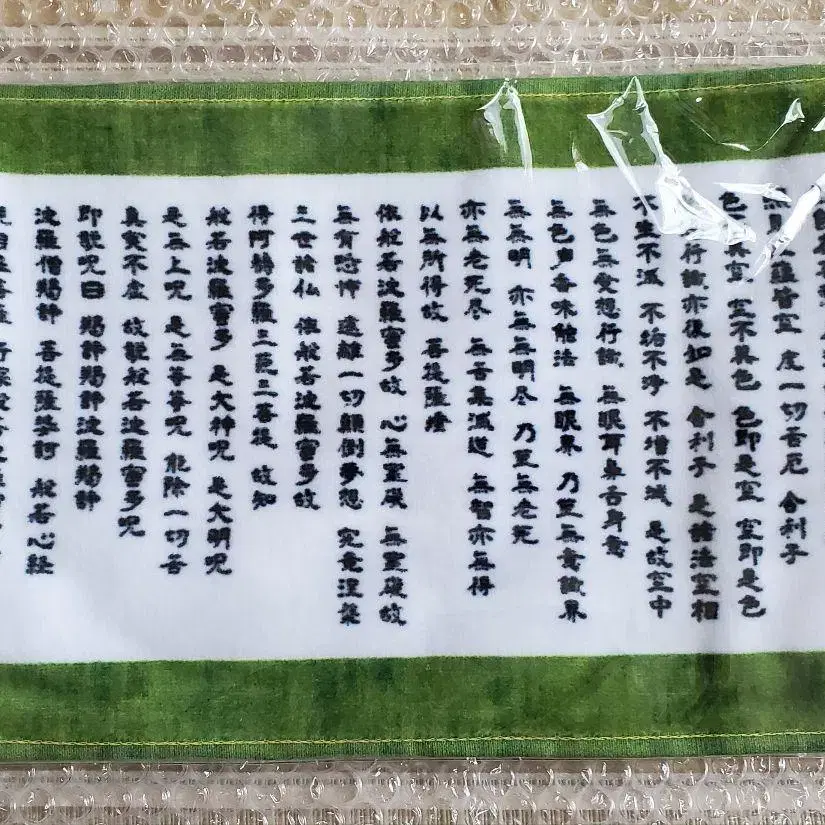 見 蘊皆空 度一切苦厄 舎利子
色 異空 空不異色 色即是空 空即是色
行識亦復如是 舎利子 是諸法空相
不生不滅 不垢不浄 不増不減 是故空中
無色無受想行識 無眼耳鼻舌身意
無色声香味触法 無眼界 乃至無意識界
無無明 亦無無明尽 乃至無老死
亦無老死尽 無苦集滅道 無智亦無得
以無所得故 菩提薩埵
依般若波羅蜜多故 心無罣礙 無罣礙故
無有恐怖 遠離一切顛倒夢想 究竟涅槃
三世諸仏 依般若波羅蜜多故
得阿耨多羅三藐三菩提 故知
般若波羅蜜多 是大神呪 是大明呪
是無上呪 是無等等呪 能除一切苦
真実不虚 故説般若波羅蜜多呪
即説呪曰 羯諦羯諦波羅羯諦
波羅僧羯諦 菩提薩婆訶 般若心経